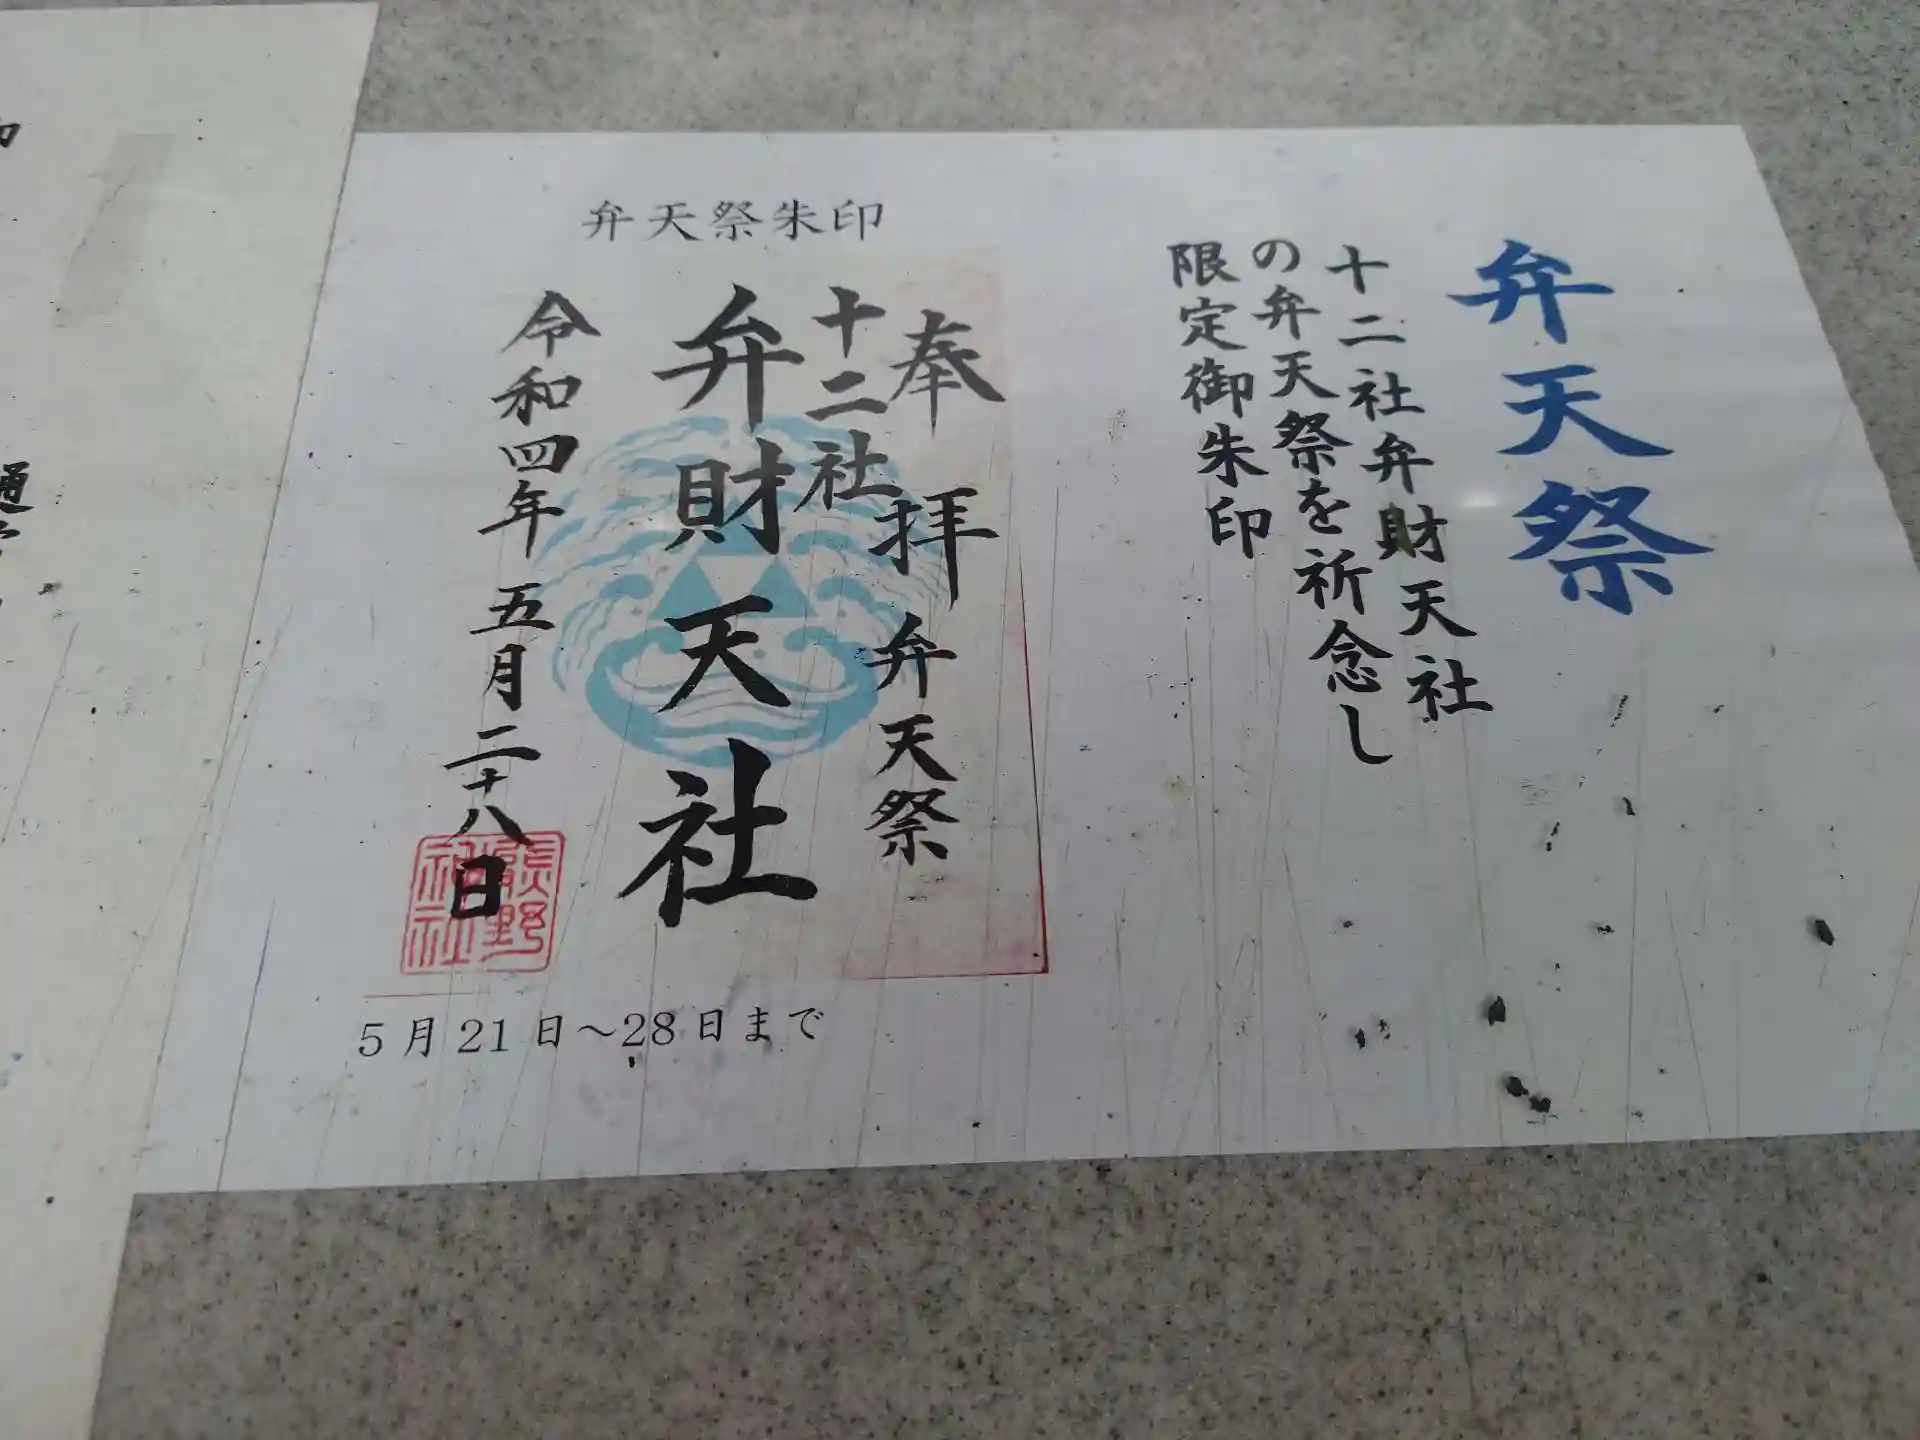 弁天祭
十二社弁財天社
の弁天祭を祈念し
限定御朱印
弁天祭朱印
奉拝 弁天祭
十二社
弁財天社
令和四年五月二十八日
熊野
神社
5月21日～28日まで
通